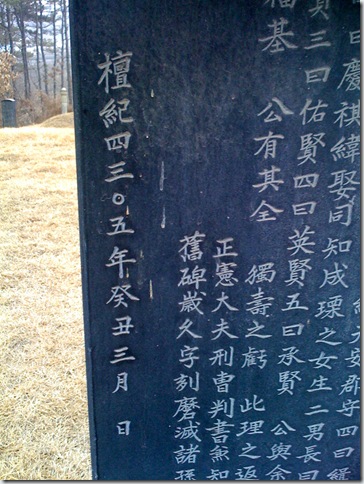 郡守四曰
曰慶祺緯娶同知成瑮之女生二男長曰
三曰佑賢四曰英賢五曰承賢 公與余
福基 公有其全 獨壽之虧 此理之返
正憲大夫刑曹判書兼知
舊碑歲久字刻磨滅諸孫
檀紀四三〇五年癸丑三月 日